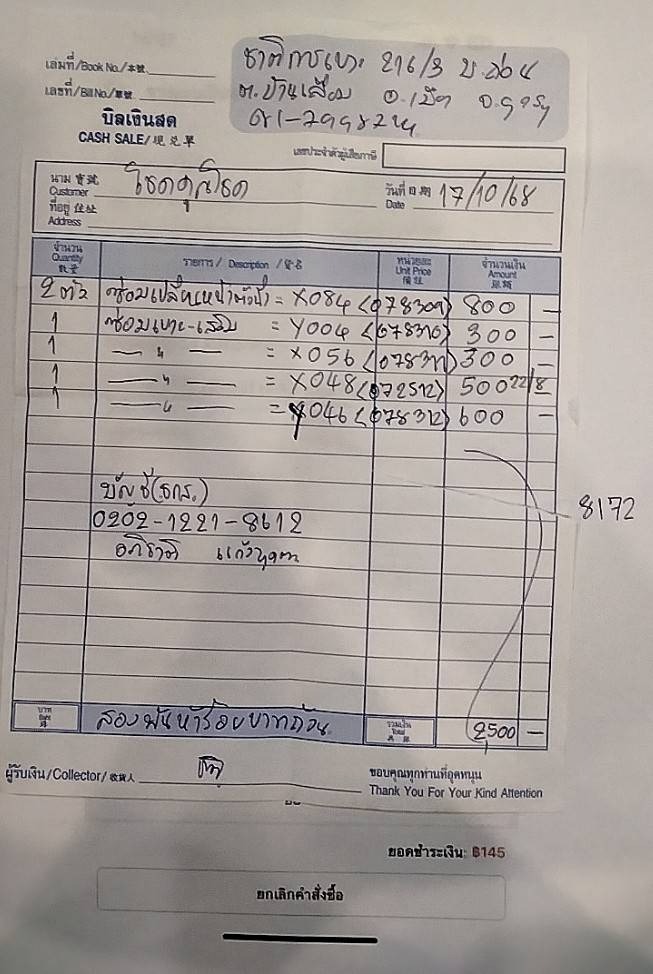 เล่มที่/Book No./本號
เลขที่/Bill No./單號
บิลเงินสด
CASH SALE/現兌單
ชาติการเบาะ 216/3 ม.
ต. อ.เมือง จ.
081-
เลขประจำตัวผู้เสียภาษี
นาม 寶號
Customer
ที่อยู่ 住址
Address
วันที่ 日期
Date 17/10/68
จำนวน
Quantity
數量
รายการ / Description / 貨名
หน่วยละ
Unit Price
價錢
จำนวนเงิน
Amount
銀額
2 ตัว ซ่อมเปลี่ยน = X084 (078309) 800 —
1 ซ่อมเบาะ-เสริม = Y004 (078310) 300 —
1 — " — = X056 (078311) 300 —
1 — " — = X048 (072512) 500 22/8
1 — " — = 046 (078312) 600 —
บัญชี (ธกส.)
0202-1221-8612
อภิชาติ
8172
บาท
Baht
สองพันห้าร้อยบาทถ้วน
รวมเงิน
Total
2,500 —
ผู้รับเงิน/Collector/收貨人
ขอบคุณทุกท่านที่อุดหนุน
Thank You For Your Kind Attention
ยอดชำระเงิน: ฿145
ยกเลิกคำสั่งซื้อ